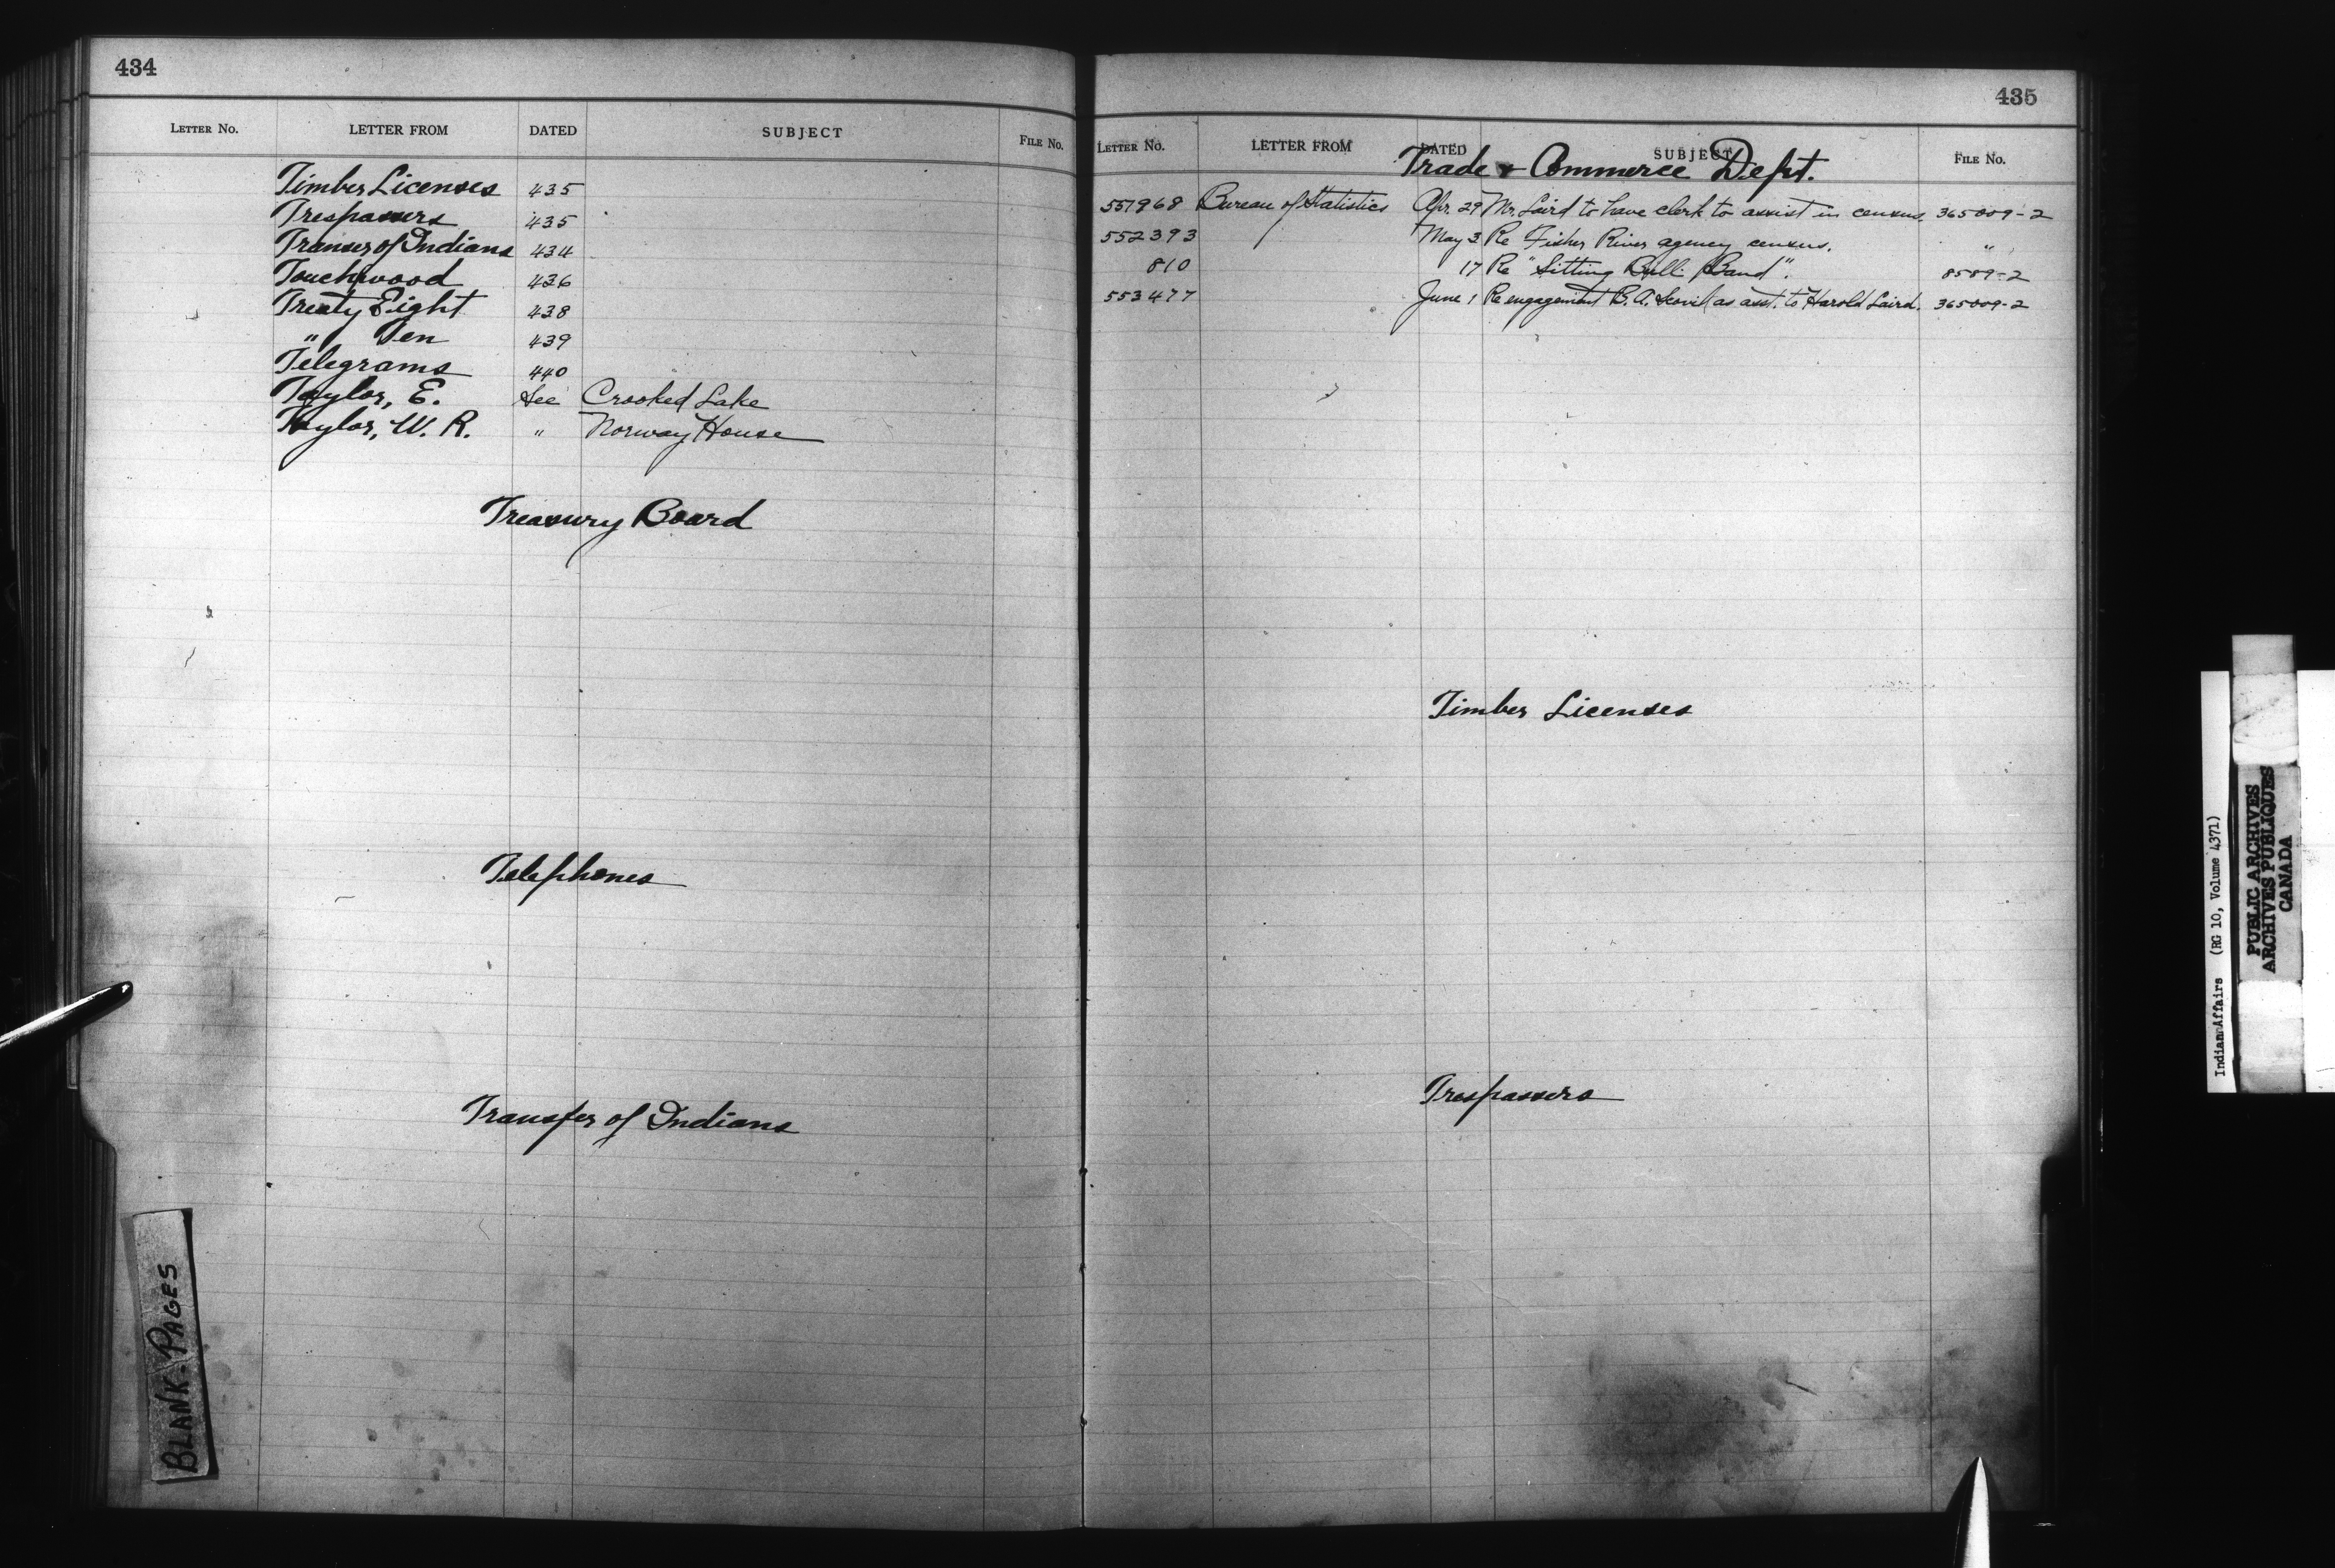 434
LETTER No. LETTER FROM DATED SUBJECT FILE No.
Timber Licenses 435
Trespassers 435
Transer of Indians 434
Touchwood 436
Treaty Eight 438
" Ten 439
Telegrams 440
Taylor, E. See Crooked Lake
Taylor, W. R. " Norway House
Treasury Board
Telephones
Transfer of Indians
BLANK-PAGES
435
LETTER No. LETTER FROM DATED SUBJECT FILE No.
Trade & Commerce Dept.
551968 Bureau of Statistics Apr. 29 Mr. Laird to have clerk to assist in census. 365009-2
552393 May 3 Re Fisher River agency census. "
810 17 Re "Sitting Bull Band". 8589-2
553477 June 1 Re engagement B. A. as asst. to Harold Laird. 365009-2
Timber Licenses
Trespassers
Indian Affairs (RG 10, Volume 4371)
PUBLIC ARCHIVES
ARCHIVES PUBLIQUES
CANADA